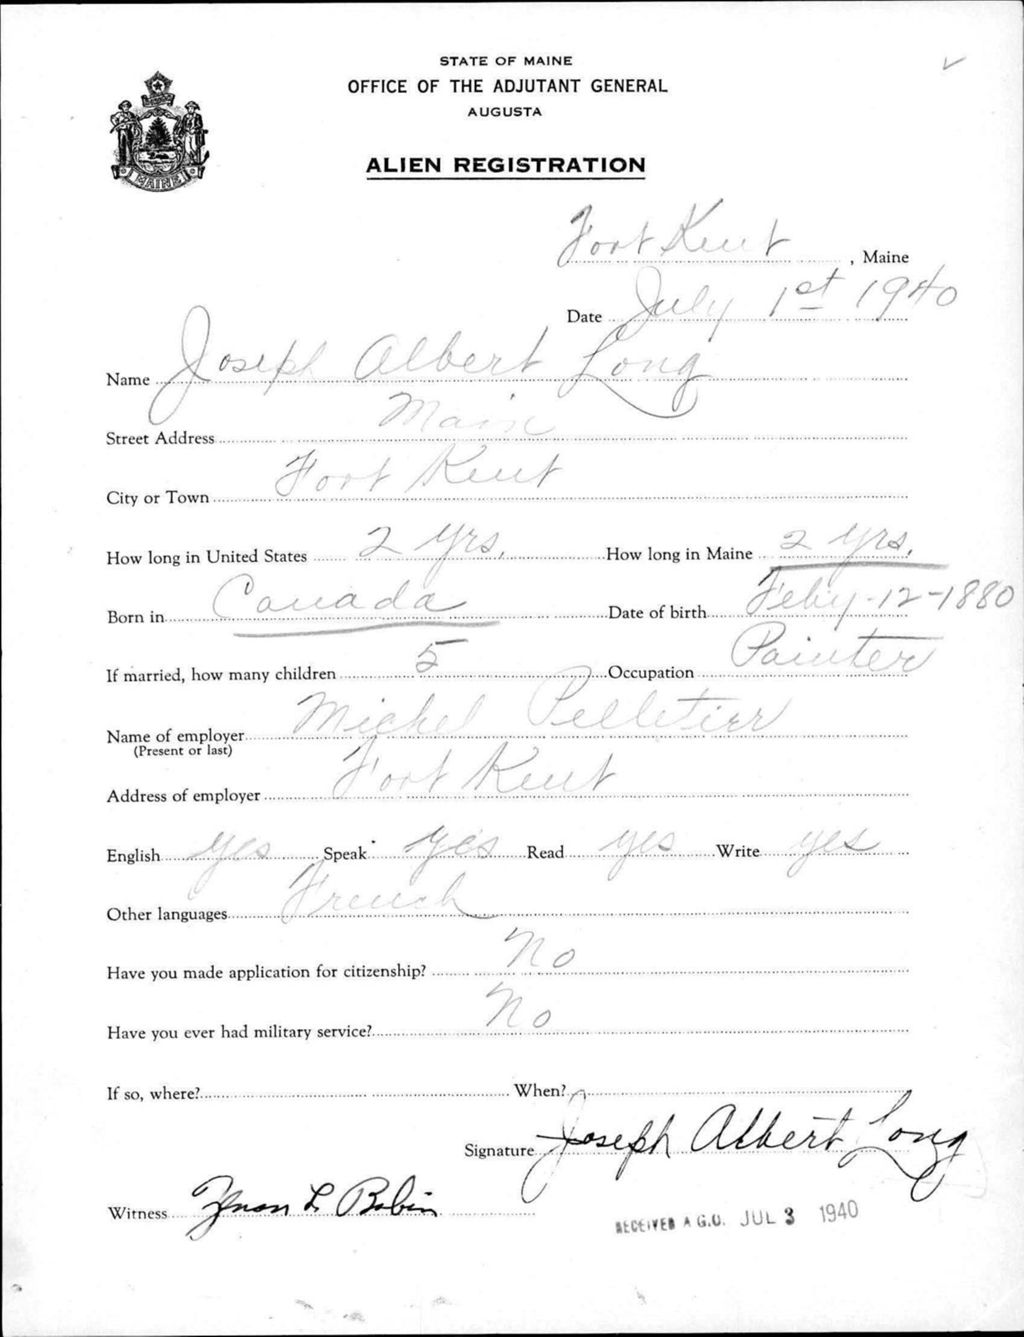 STATE OF MAINE
OFFICE OF THE ADJUTANT GENERAL
AUGUSTA
ALIEN REGISTRATION
MAINE
Fort Kent, Maine
Date July 1st 1940
Name Joseph Albert Long
Street Address Main
City or Town Fort Kent
How long in United States 2 yrs. How long in Maine 2 yrs.
Born in Canada Date of birth Feby-12-1880
If married, how many children 5 Occupation Painter
Name of employer Michel Pelletier
(Present or last)
Address of employer Fort Kent
English yes Speak yes Read yes Write yes
Other languages French
Have you made application for citizenship? No
Have you ever had military service? No
If so, where? When?
Signature Joseph Albert Long
Witness L Robin
RECEIVED A.G.O. JUL 3 1940